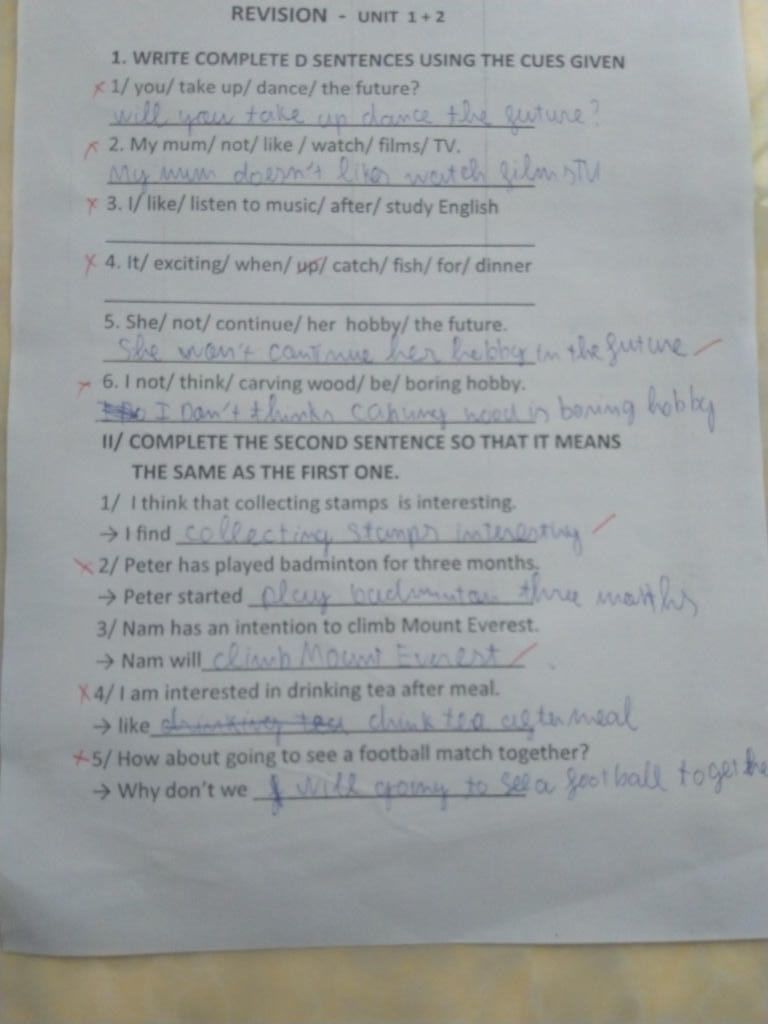 REVISION - UNIT 1 + 2
1. WRITE COMPLETE D SENTENCES USING THE CUES GIVEN
1/ you/ take up/ dance/ the future?
will you take up dance the future?
2. My mum/ not/ like / watch/ films/ TV.
My mum doesn't likes watch films TV
3. I/ like/ listen to music/ after/ study English
4. It/ exciting/ when/ up/ catch/ fish/ for/ dinner
5. She/ not/ continue/ her hobby/ the future.
She won't continue her hobby in the future
6. I not/ think/ carving wood/ be/ boring hobby.
I Don't thinks carving wood is boring hobby
II/ COMPLETE THE SECOND SENTENCE SO THAT IT MEANS
THE SAME AS THE FIRST ONE.
1/ I think that collecting stamps is interesting.
→ I find collecting stamps interesting
2/ Peter has played badminton for three months.
→ Peter started play badminton three months
3/ Nam has an intention to climb Mount Everest.
→ Nam will climb Mount Everest
4/ I am interested in drinking tea after meal.
→ like drinking tea drink tea after meal
5/ How about going to see a football match together?
→ Why don't we will going to see a football together